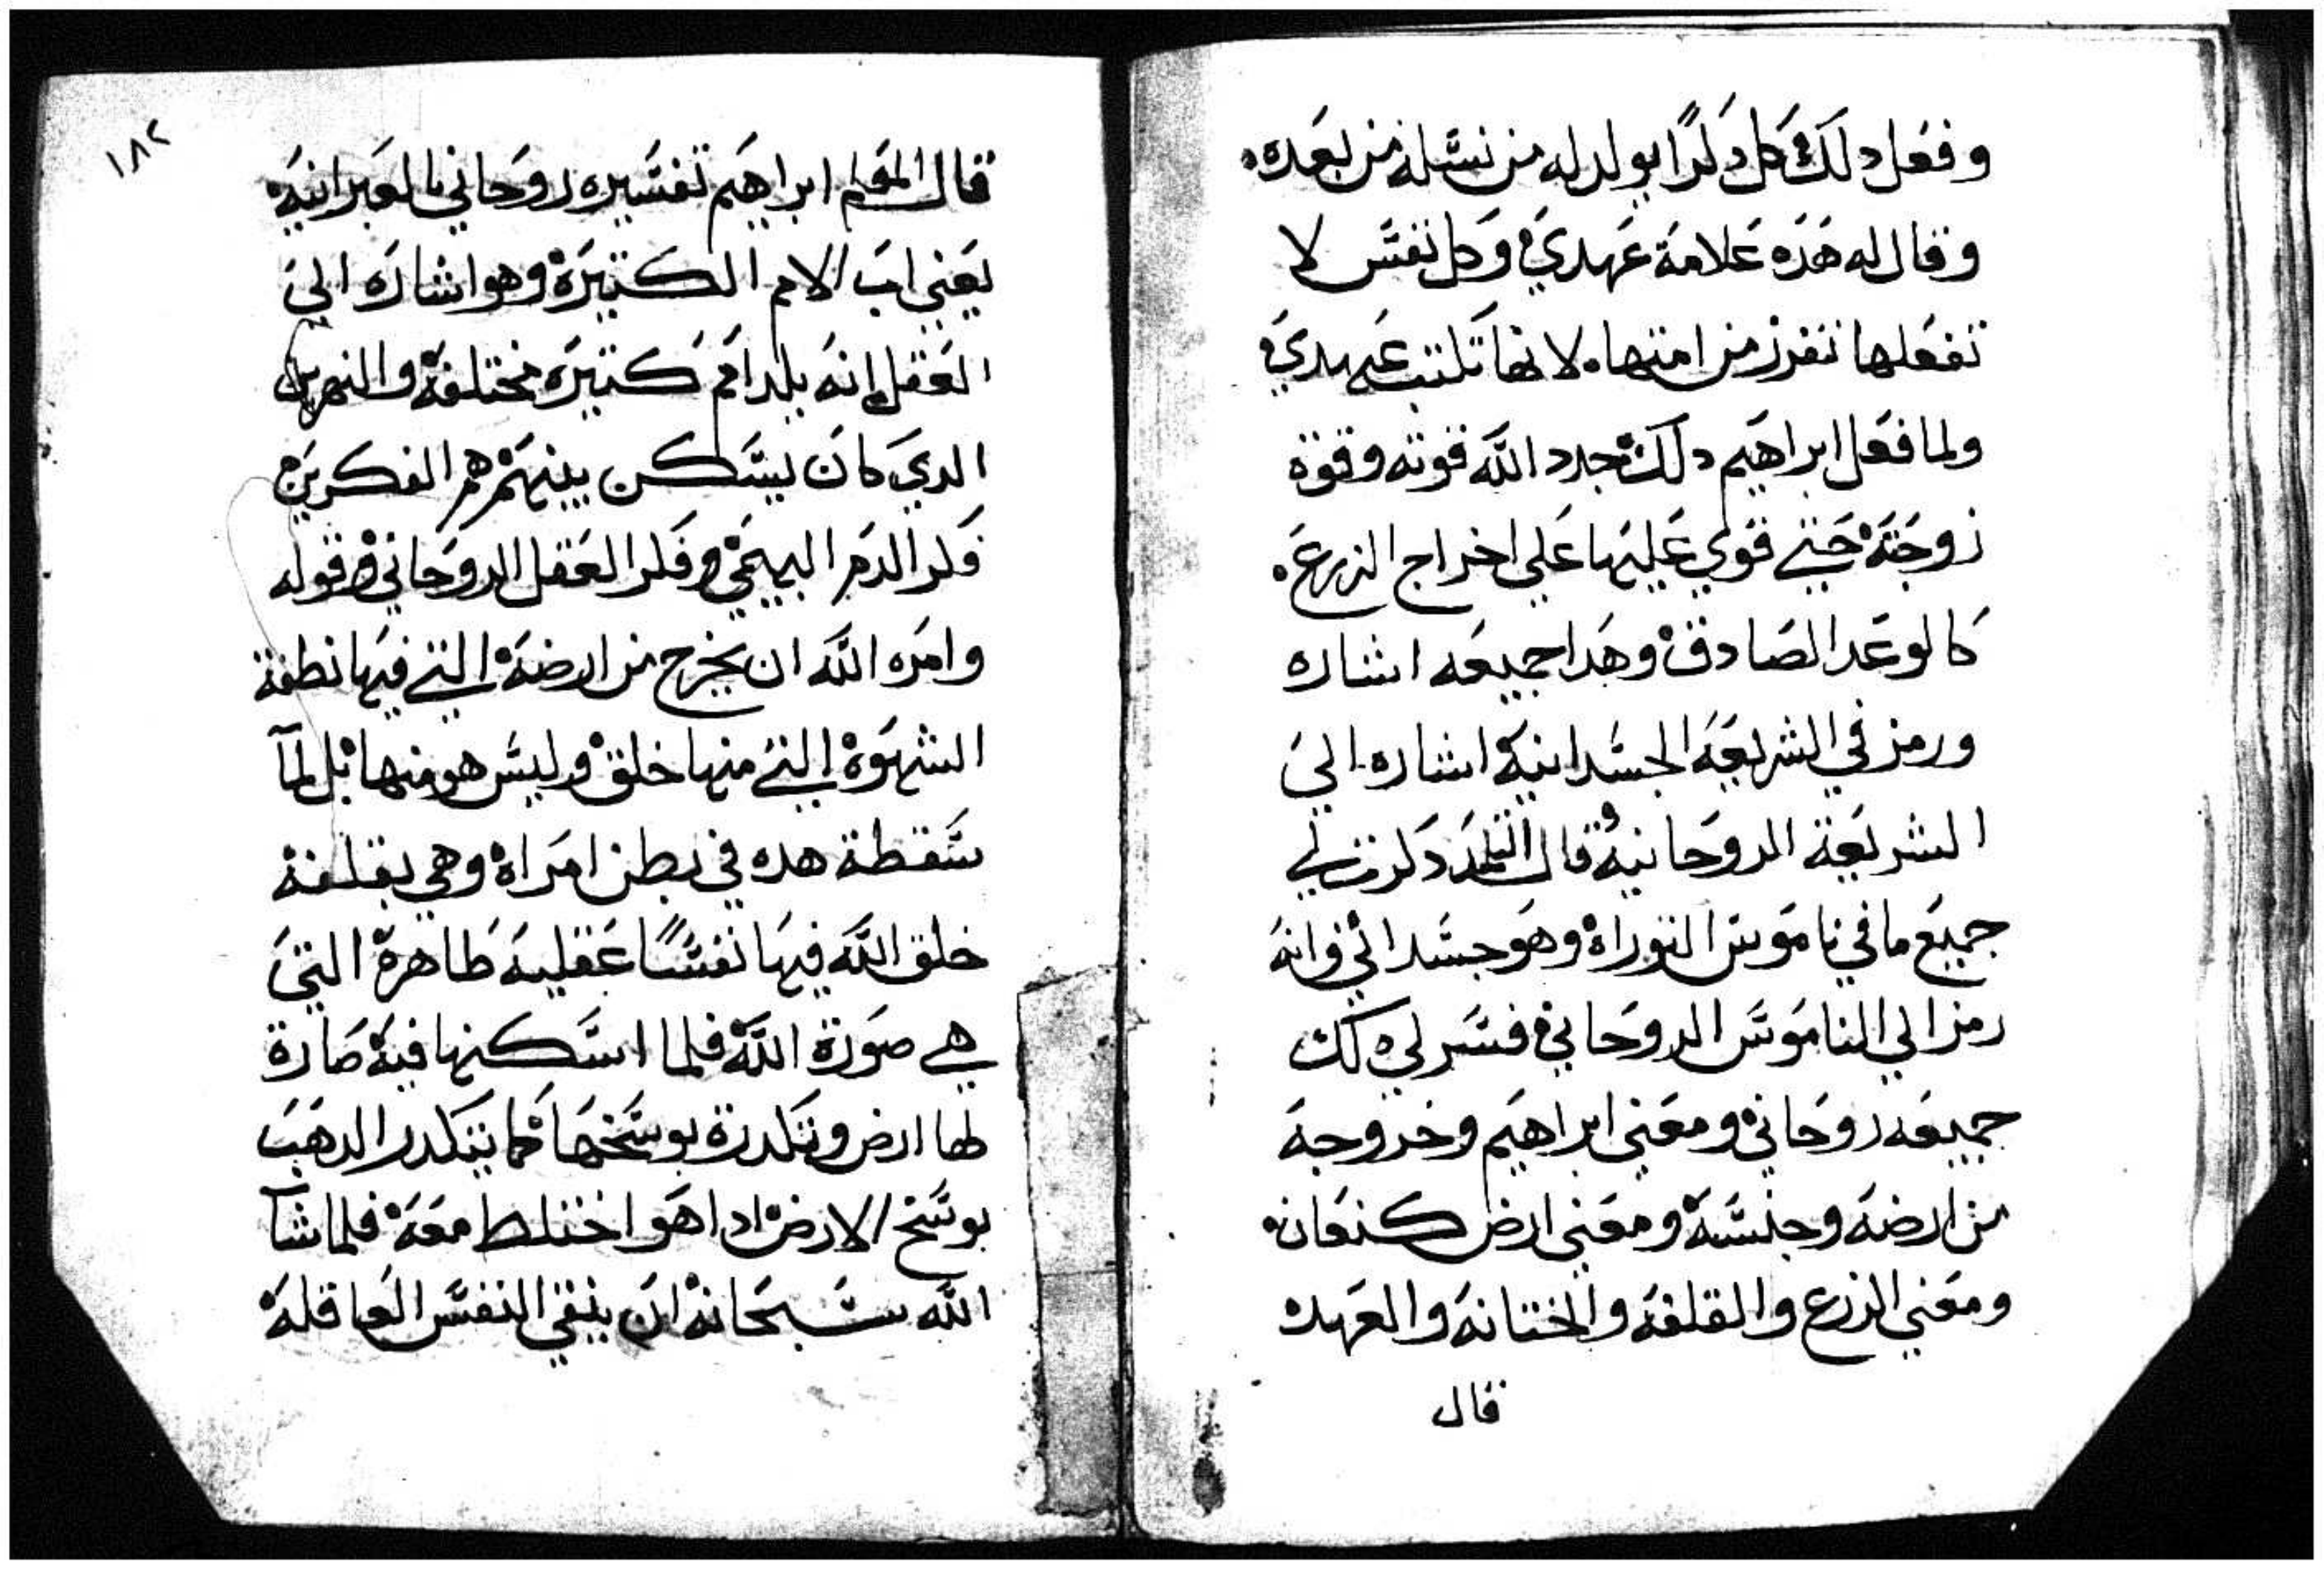 وفعل دلك كل دكرًا يولد له من نسله من بعده
وقال له هده علامة عهدي وكل نفس لا
تفعلها تفرز من امتها لانها نكتت عهدي
ولما فعل ابراهيم دلك جدد الله قوته وقوة
زوجته حتي قوي عليها علي اخراج الزرع
كالوعد الصادق وهدا جميعه اشاره
ورمز في الشريعه الجسدانيه اشاره الي
الشريعة الروحانيه قال التلميد دكرت لي
جميع ما في ناموس التوراه وهو جسداني وانه
رمزا لي الناموس الروحاني فسر لي دلك
جميعه روحاني ومعني ابراهيم وخروجه
من ارضه وجنسه ومعني ارض كنعان
ومعني الزرع والقلفه والختانه والعهد
قال
١٨٢
قال المعلم ابراهيم تفسيره روحاني بالعبرانيه
يعني اب الامم الكتيره وهو اشاره الي
العقل انه يلد امم كتيره مختلفه والنهرين
الدي كان يسكن بينهم هم الفكرين
فكر الدم البهيمي وفكر العقل الروحاني وقوله
وامره الله ان يخرج من ارضه التي فيها نطفة
الشهوه التي منها خلق وليس هو منها بل لمآ
سقطة هده في بطن امراه وهي بقلفة
خلق الله فيها نفسًا عقليه طاهرة التي
هي صورة الله فلما اسكنها فيه صارة
لها ارض وتكدرة بوسخها كما يتكدر الدهب
بوسخ الارض ادا هو اختلط معه فلما شآ
الله سبحانه ان ينقي النفس العاقله